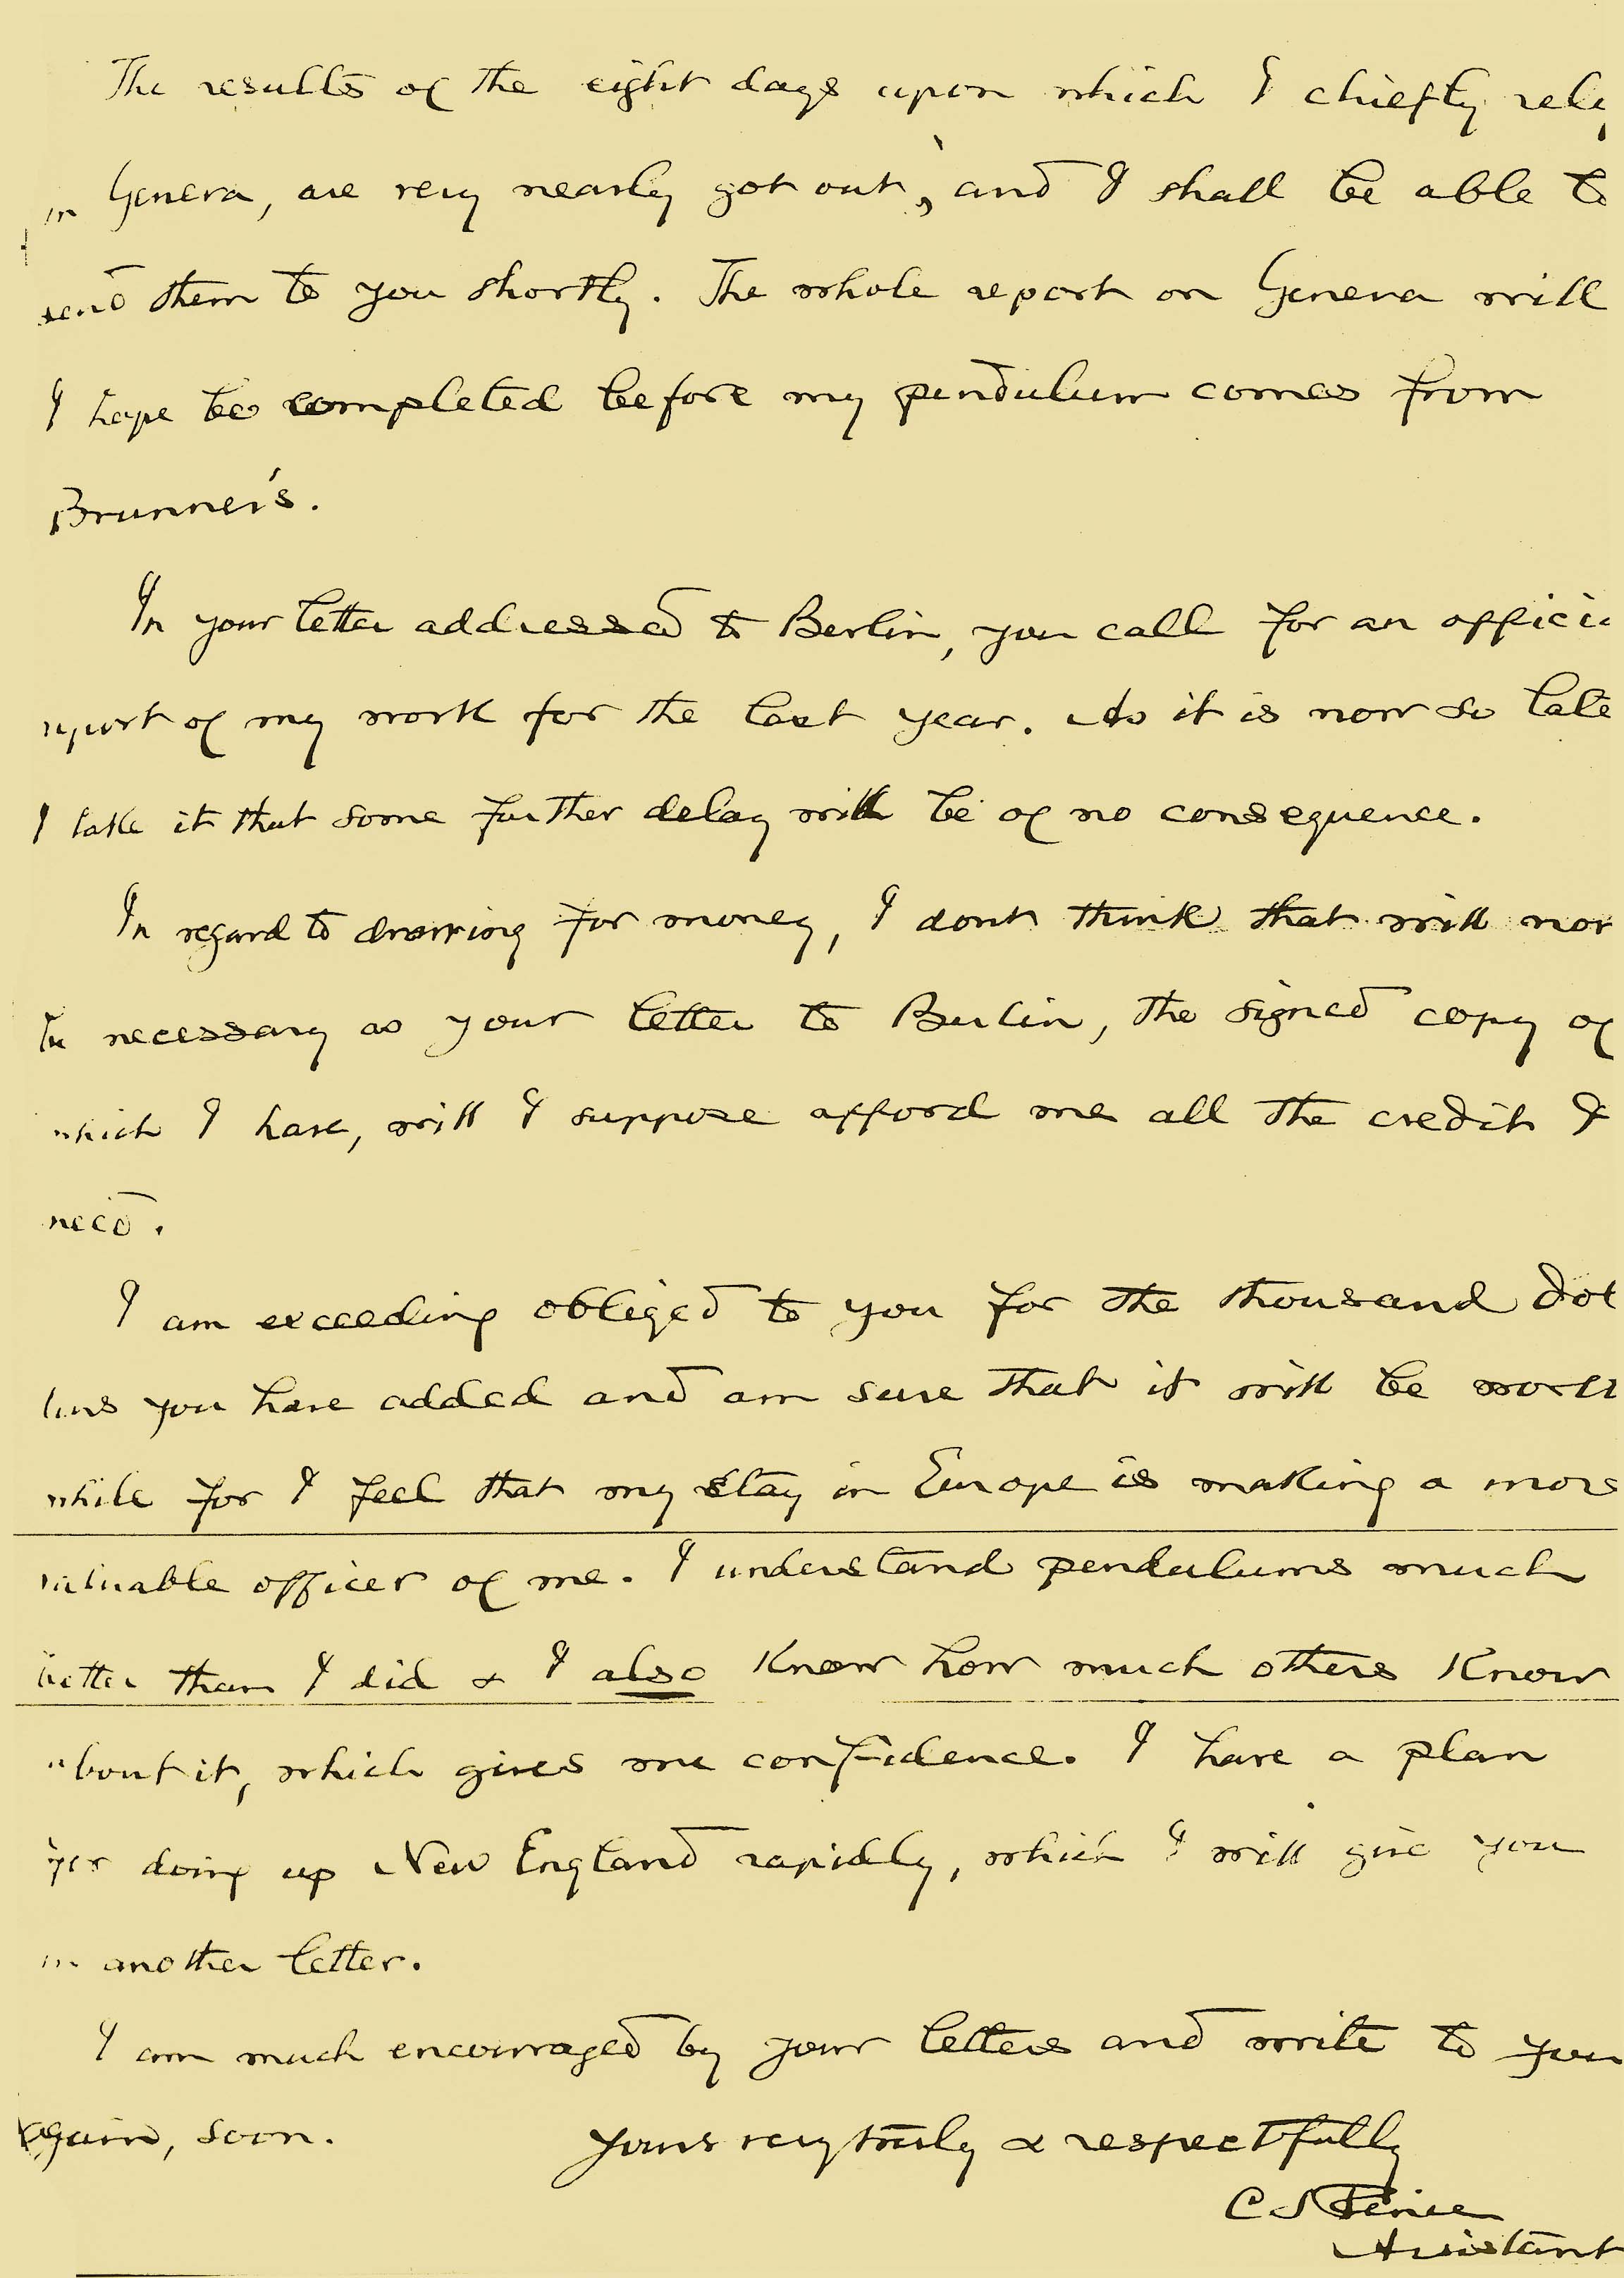 The results of the eight days upon which I chiefly rely
in Geneva, are very nearly got out, and I shall be able to
send them to you shortly. The whole report on Geneva will
I hope be completed before my pendulum comes from
Brunner's.
In your letter addressed to Berlin, you call for an officia
report of my work for the last year. As it is now so late
I take it that some further delay will be of no consequence.
In regard to drawing for money, I dont think that will now
be necessary as your letter to Berlin, the signed copy of
which I have, will I suppose afford me all the credit I
need.
I am exceeding obliged to you for the thousand dol
lars you have added and am sure that it will be worth
while for I feel that my stay in Europe is making a more
valuable officer of me. I understand pendulums much
better than I did & I also know how much others know
about it, which gives me confidence. I have a plan
for doing up New England rapidly, which I will give you
in another letter.
I am much encouraged by your letters and write to you
again, soon. Yours very truly & respectfully
C S Peirce
Assistant